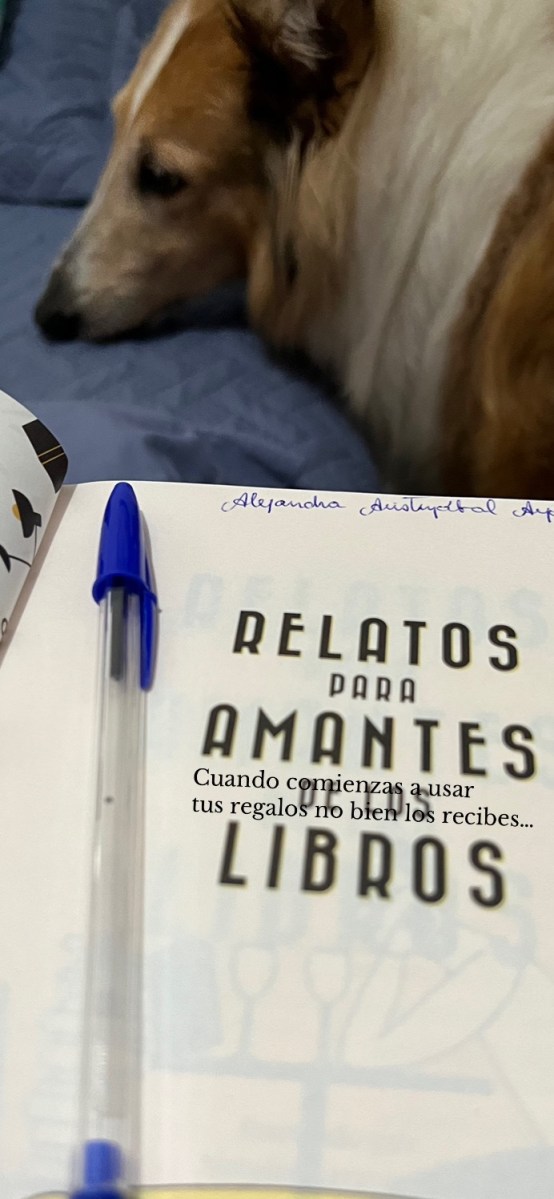 Alejandra
RELATOS
PARA
AMANTES
DE LOS
LIBROS
Cuando comienzas a usar
tus regalos no bien los recibes...